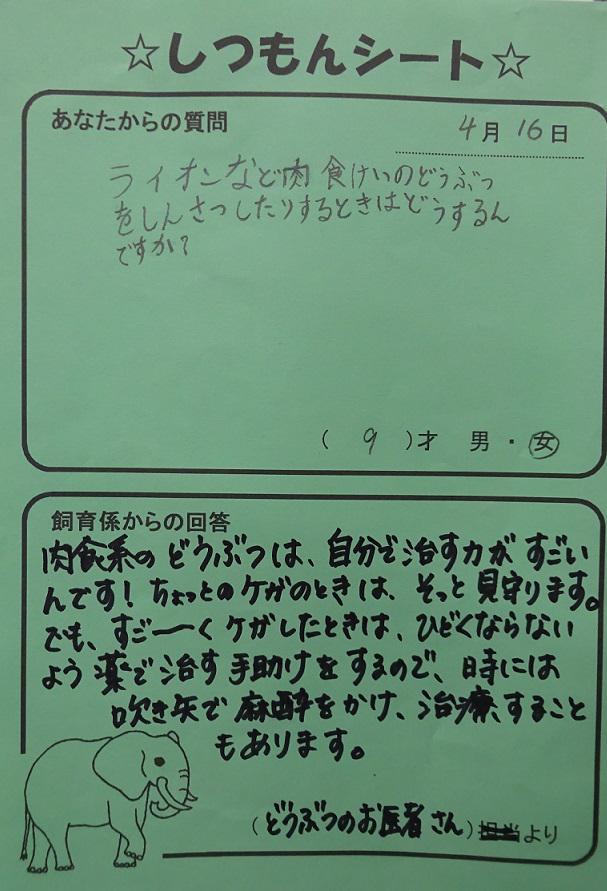 ☆しつもんシート☆
あなたからの質問
4月16日
ライオンなど肉食けいのどうぶつ
をしんさつしたりするときはどうするん
ですか?
( 9 )才 男・女
飼育係からの回答
肉食系のどうぶつは、自分で治す力がすごい
んです!ちょっとのケガのときは、そっと見守ります。
でも、すご〜くケガしたときは、ひどくならない
よう薬で治す手助けをするので、時には
吹き矢で麻酔をかけ、治療、すること
もあります。
(どうぶつのお医者さん)担当より